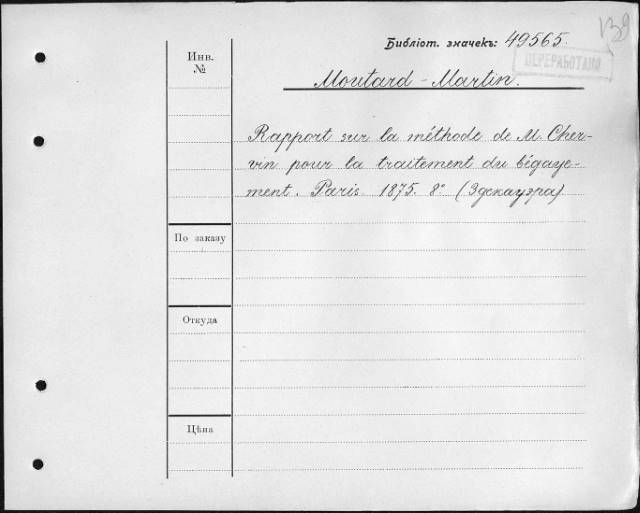 Библіот. значекъ: 49565.
ПЕРЕРАБОТАНО
Инв.
№
Moutard-Martin.
Rapport sur la méthode de M. Cher-
vin pour la traitement du bégaye-
ment. Paris 1875. 8° (Эдекауэра)
По заказу
Откуда
Цѣна